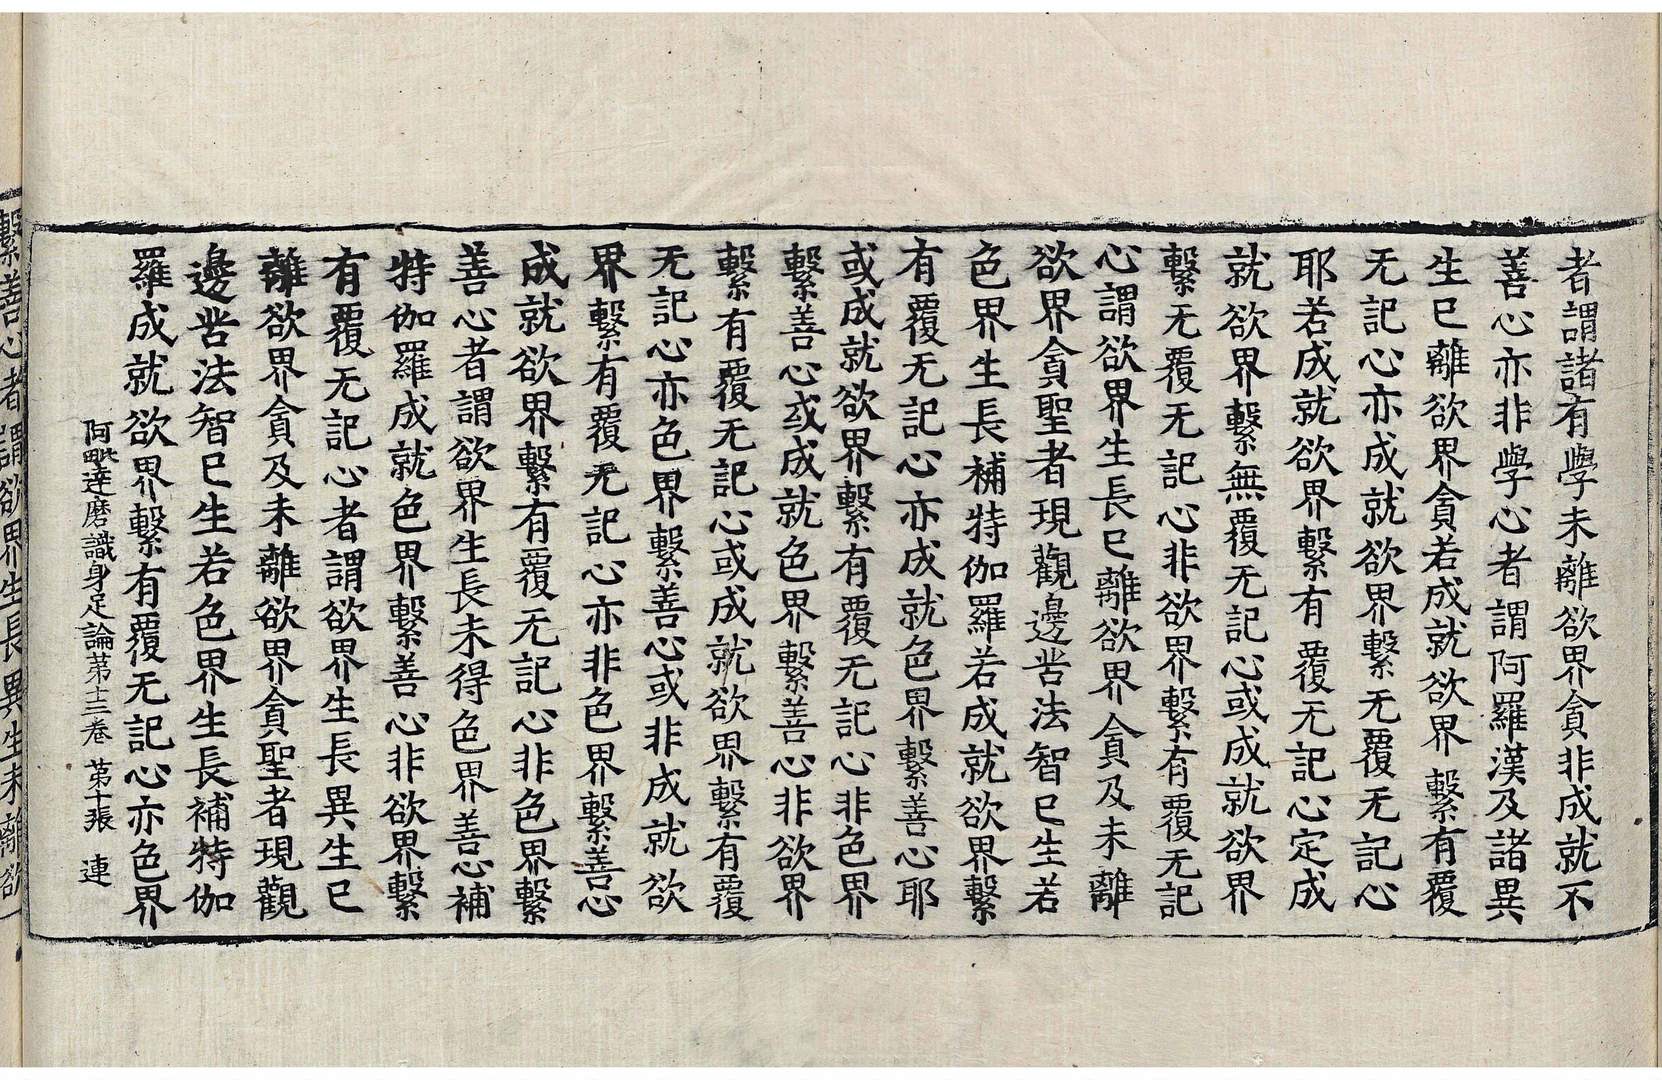 者謂諸有學未離欲界貪非成就不
善心亦非學心者謂阿羅漢及諸異
生已離欲界貪若成就欲界繫有覆
无記心亦成就欲界繫无覆无記心
耶若成就欲界繫有覆无記心定成
就欲界繫無覆无記心或成就欲界
繫无覆无記心非欲界繫有覆无記
心謂欲界生長已離欲界貪及未離
欲界貪聖者現觀邊苦法智已生若
色界生長補特伽羅若成就欲界繫
有覆无記心亦成就色界繫善心耶
或成就欲界繫有覆无記心非色界
繫善心或成就色界繫善心非欲界
繫有覆无記心或成就欲界繫有覆
无記心亦色界繫善心或非成就欲
界繫有覆无記心亦非色界繫善心
成就欲界繫有覆无記心非色界繫
善心者謂欲界生長未得色界善心補
特伽羅成就色界繫善心非欲界繫
有覆无記心者謂欲界生長異生已
離欲界貪及未離欲界貪聖者現觀
邊苦法智已生若色界生長補特伽
羅成就欲界繫有覆无記心亦色界
阿毗達磨識身足論第十三卷 第十張 連
繫善心者謂欲界生長異生未離欲